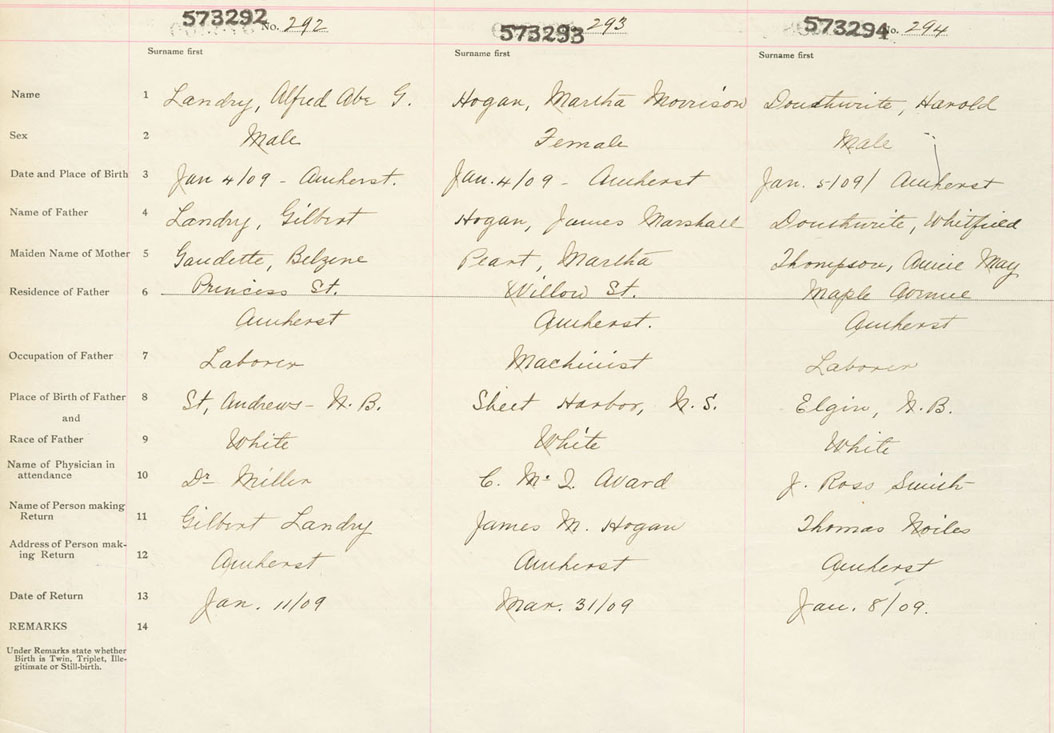 573292 No. 292 573293 293 573294 No. 294
Surname first Surname first Surname first
Name 1 Landry, Alfred Abe G. Hogan, Martha Morrison Douthwrite, Harold
Sex 2 Male Female Male
Date and Place of Birth 3 Jan 4/09 - Amherst. Jan. 4/09 - Amherst Jan. 5/09/ Amherst
Name of Father 4 Landry, Gilbert Hogan, James Marshall Douthwrite, Whitfield
Maiden Name of Mother 5 Gaudette, Belzene Peart, Martha Thompson, Annie May
Residence of Father 6 Princess St. Willow St. Maple Avenue
Amherst Amherst. Amherst
Occupation of Father 7 Laborer Machinist Laborer
Place of Birth of Father 8 St, Andrews - N.B. Sheet Harbor, N.S. Elgin, N.B.
and
Race of Father 9 White White White
Name of Physician in
attendance 10 Dr Miller C. Mc Q. Avard J. Ross Smith
Name of Person making
Return 11 Gilbert Landry James M. Hogan Thomas Noiles
Address of Person mak-
ing Return 12 Amherst Amherst Amherst
Date of Return 13 Jan. 11/09 Mar. 31/09 Jan. 8/09.
REMARKS 14
Under Remarks state whether
Birth is Twin, Triplet, Ille-
gitimate or Still-birth.